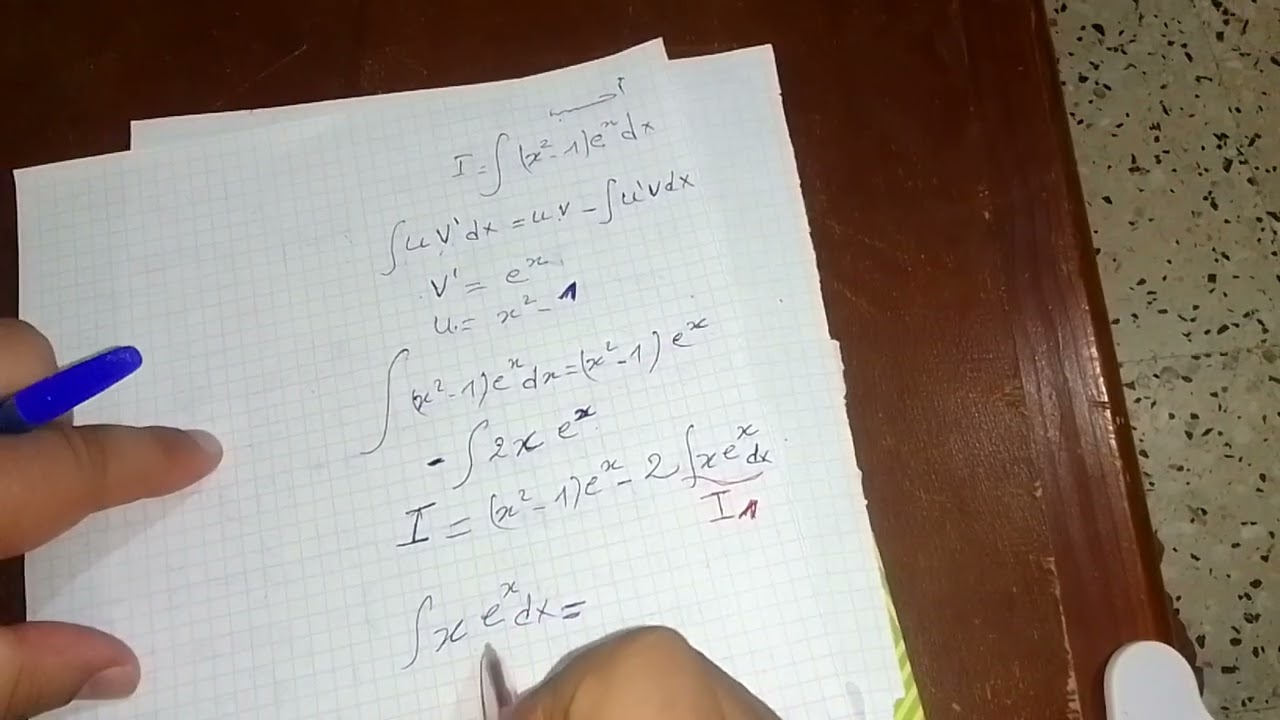 I = ∫ (x² - 1) eˣ dx
∫ u v' dx = u.v - ∫ u' v dx
v' = eˣ
u = x² - 1
∫ (x² - 1) eˣ dx = (x² - 1) eˣ
- ∫ 2x eˣ
I = (x² - 1) eˣ - 2 ∫ x eˣ dx
I₁
∫ x eˣ dx =